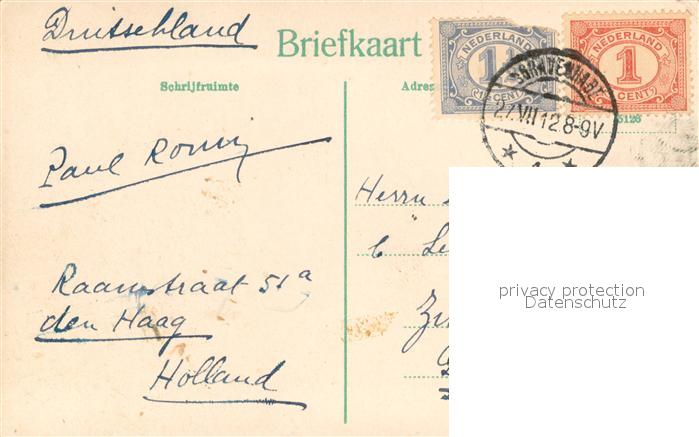 Duitschland
Briefkaart
NEDERLAND
1½
1½ CENT
NEDERLAND
1
CENT
'S-GRAVENHAGE
27.VII.12 8-9V
Schrijfruimte
Adres
5126
Paul
Herrn
Raamstraat 51a
den Haag
Holland
privacy protection
Datenschutz